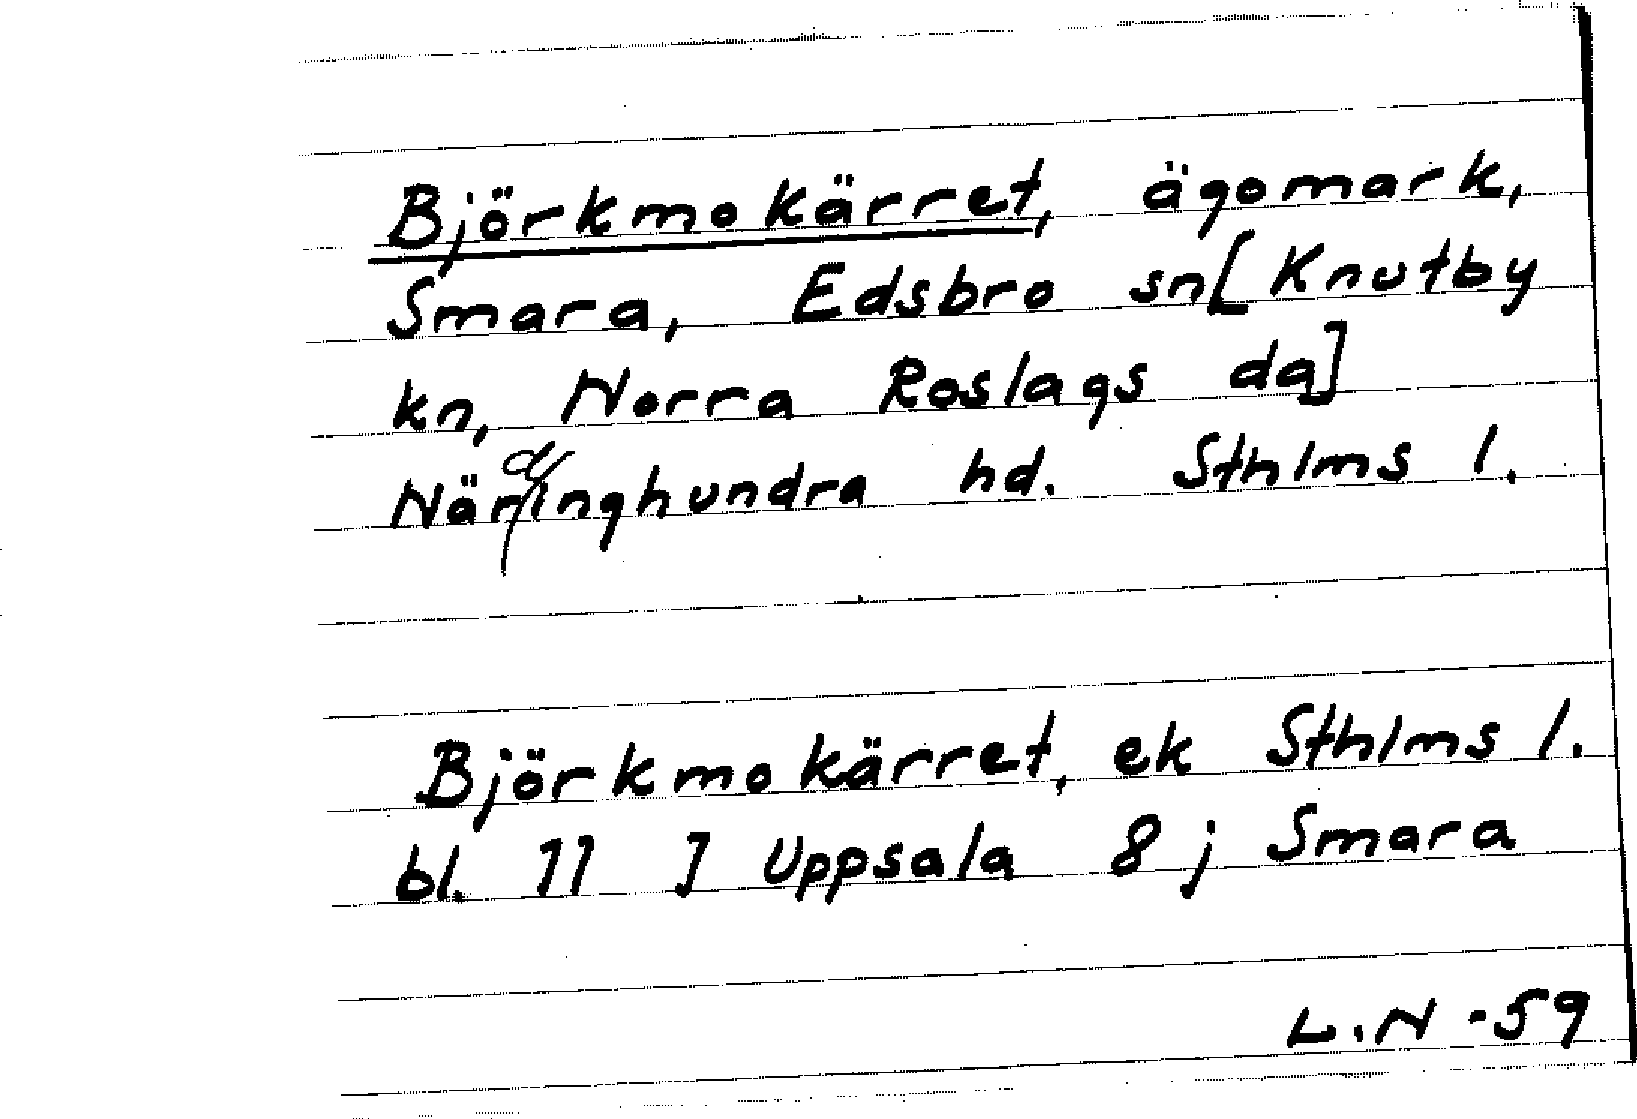 Björkmokärret, ägomark,
Smara, Edsbro sn[Knutby
kn, Norra Roslags da]
Närdinghundra hd. Sthlms l.
Björkmokärret, ek Sthlms l.
bl. 11 J Uppsala 8 j Smara
L.N -59